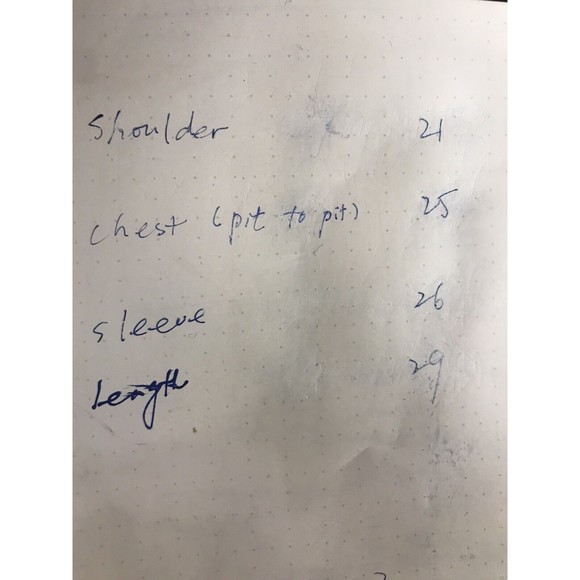 Shoulder 21
chest (pit to pit) 25
sleeve 26
Length 29